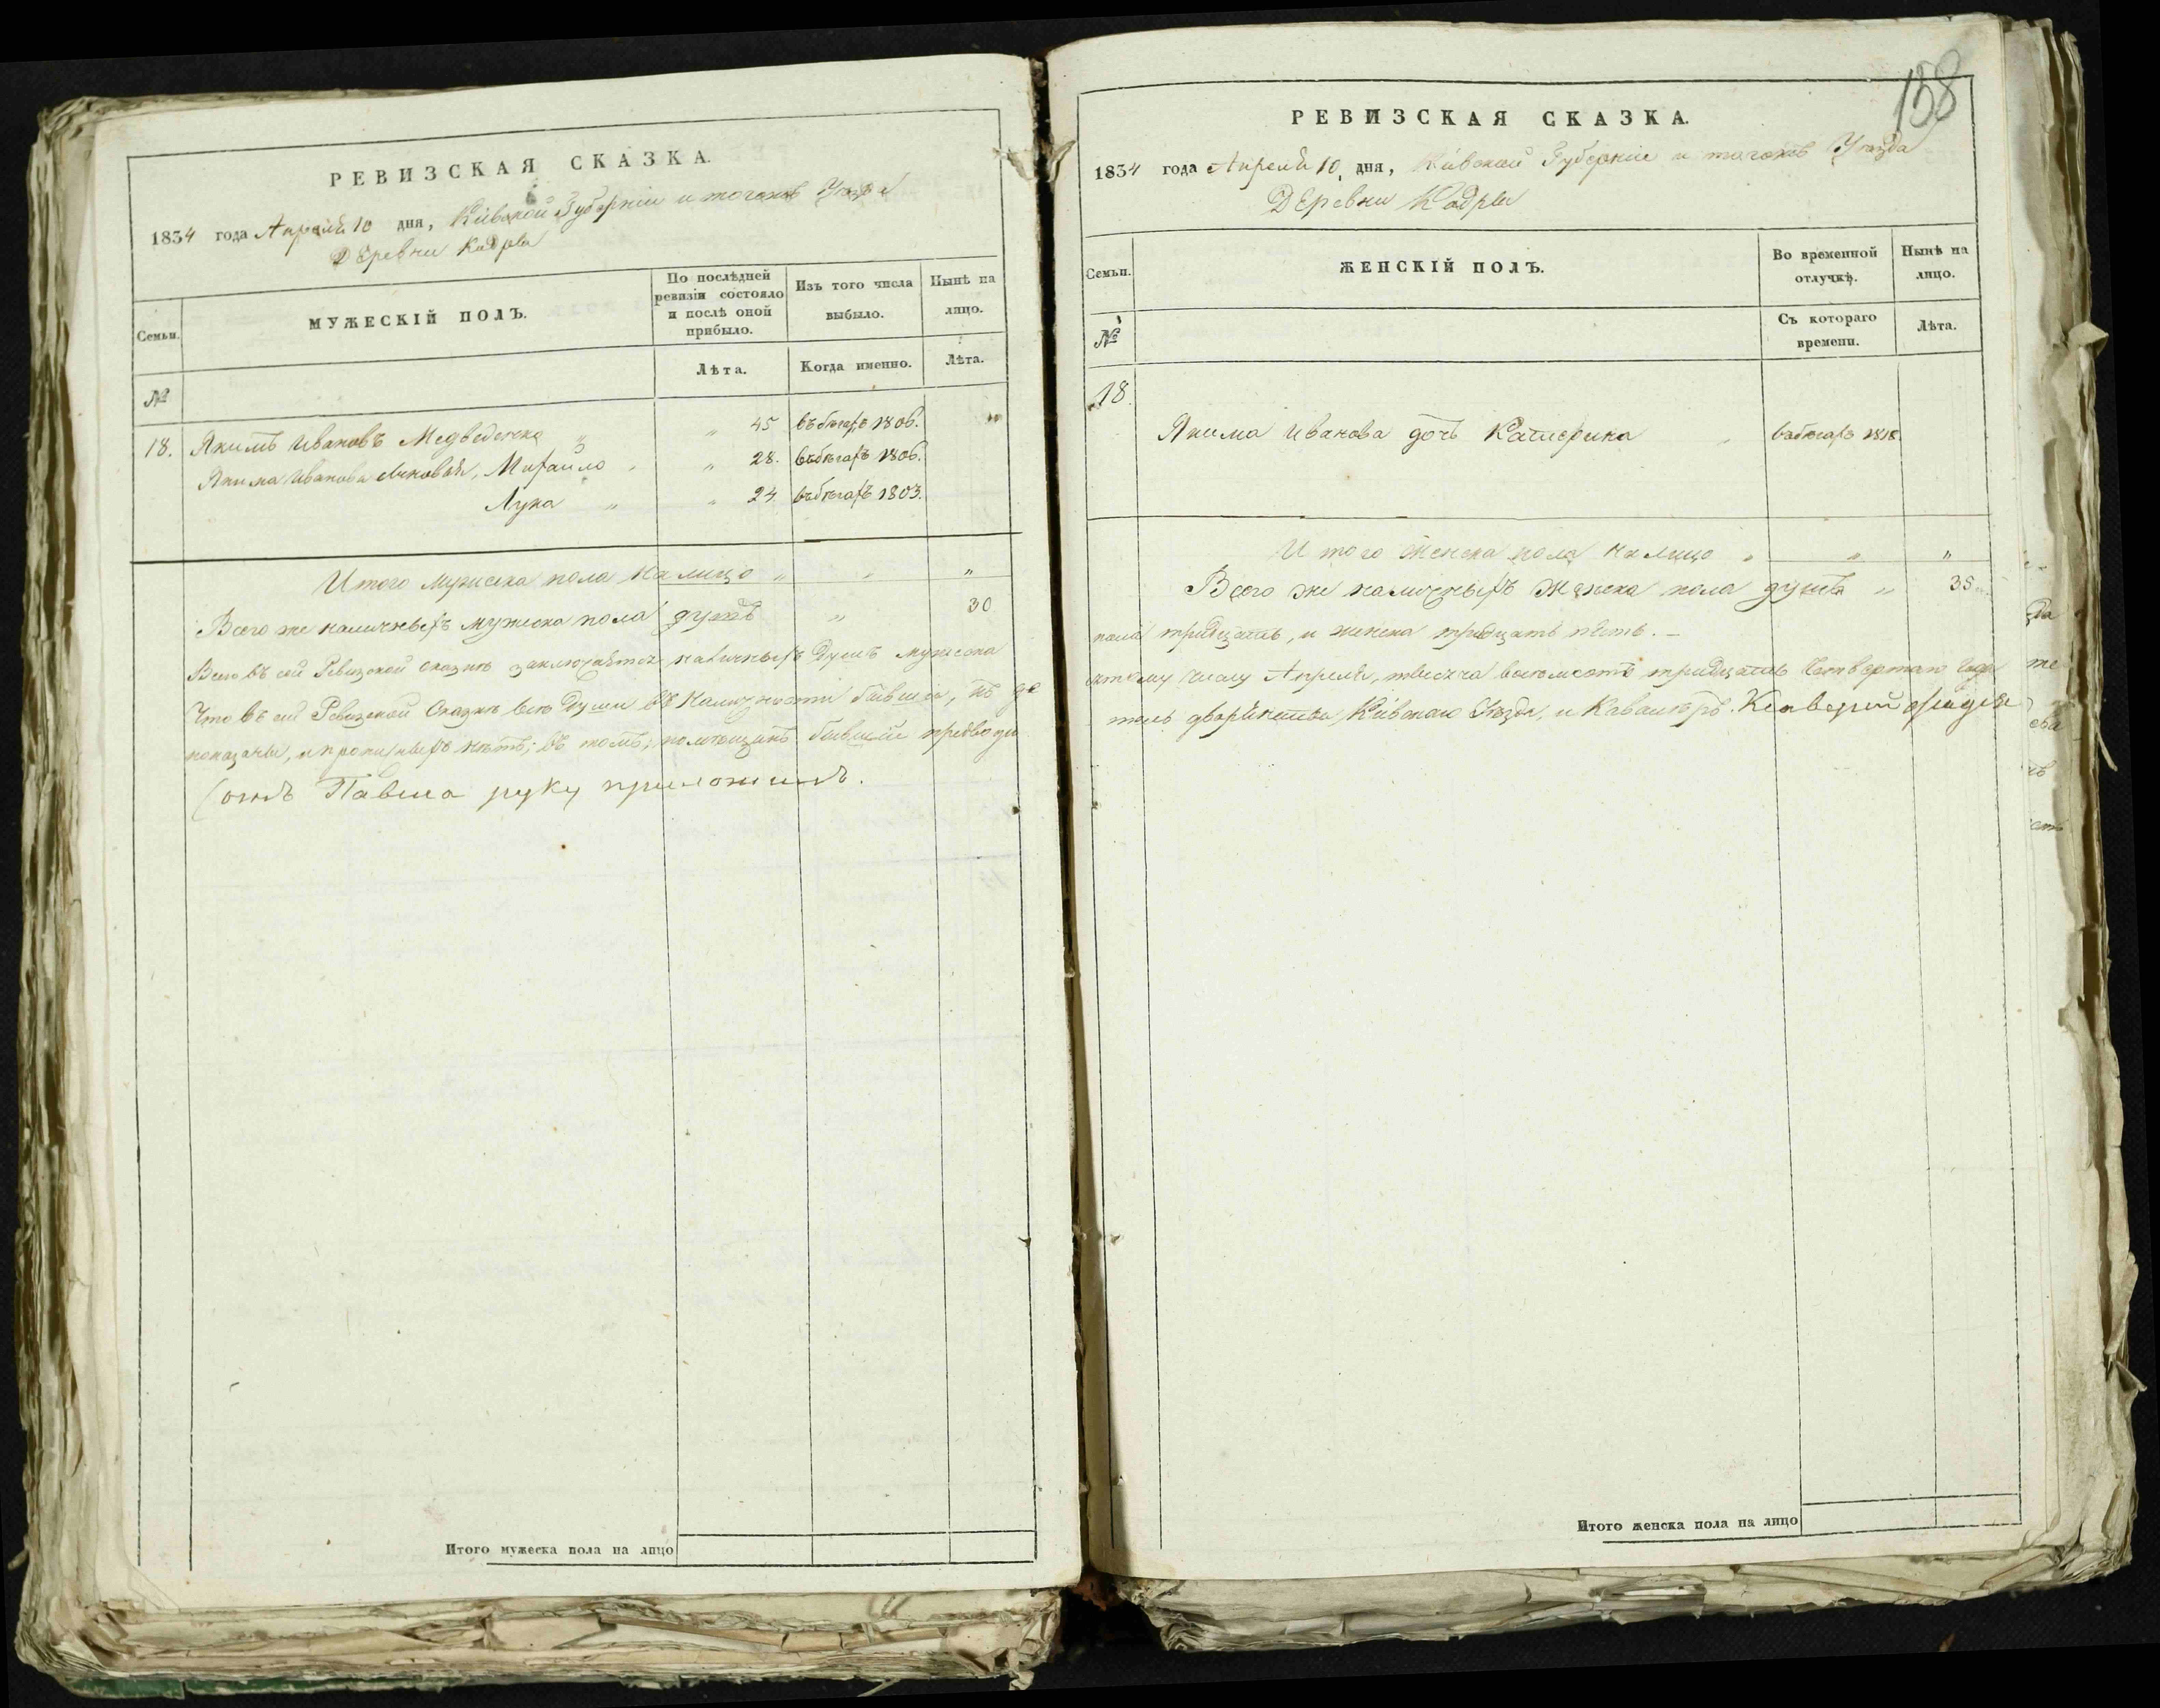 РЕВИЗСКАЯ СКАЗКА.
1834 года Апреля 10 дня, Кіевской Губерніи и тогожъ Уезда
Деревни Кадры
Семьи.
МУЖЕСКІЙ ПОЛЪ.
По послѣдней ревизіи состояло и послѣ оной прибыло.
Изъ того числа выбыло.
Нынѣ на лицо.
№
Лѣта.
Когда именно.
Лѣта.
18. Якимъ Ивановъ Медведенко " " 45 въ бегахъ 1806. "
Якима Иванова сыновья, Михайло " " 28. въ бегахъ 1806.
Лука " " 24 въ бегахъ 1803.
Итого мужеска пола на лицо " " "
Всего же наличныхъ мужеска пола душъ " 30
Всего въ сей Ревизской сказке заключается наличныхъ душъ мужеска
Что въ сей Ревизской Сказке все души въ наличности бывшіе, къ де
показаны, и прописныхъ нетъ; въ томъ, помещикъ бывший предводи
сынъ Павла руку приложилъ.
Итого мужеска пола на лицо
158
РЕВИЗСКАЯ СКАЗКА.
1834 года Апреля 10 дня, Кіевской Губерніи и тогожъ Уезда
Деревни Кадры
Семьи.
ЖЕНСКІЙ ПОЛЪ.
Во временной отлучкѣ.
Нынѣ на лицо.
№
Съ котораго времени.
Лѣта.
18.
Якима Иванова дочь Катерина " въ бегахъ 1818.
Итого женска пола на лицо " " "
Всего же наличныхъ женска пола душъ " 35
пола тридцать, и женска тридцать пять. —
сятому числу Апреля, тысяча восемсотъ тридцать четвертаго года
тель дворянства Кіевскаго Уезда, и Кавалеръ Ксаверій
Итого женска пола на лицо